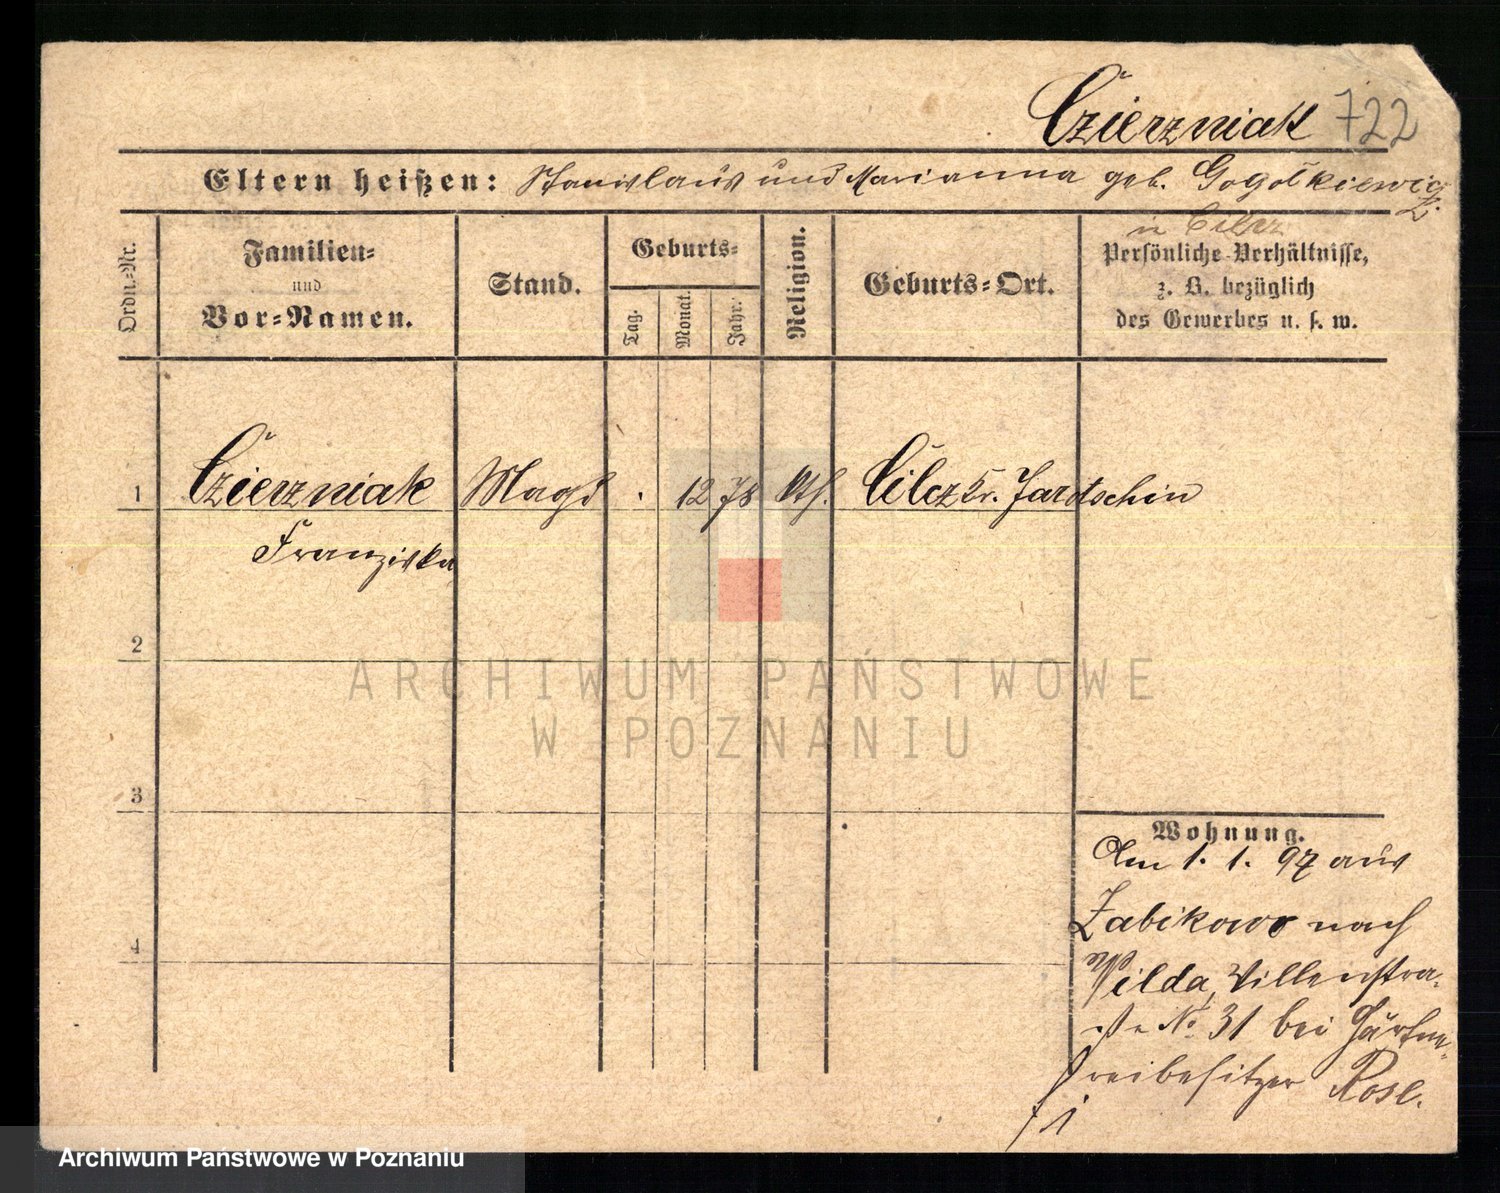 Czierzniak 722
Eltern heißen: Stanislaus und Marianna geb. Gogolkiewicz
in Cilcz
Ordn.-Nr.
Familien-
und
Vor-Namen.
Stand.
Geburts-
Tag.
Monat.
Jahr.
Religion.
Geburts-Ort.
Persönliche Verhältnisse,
z. B. bezüglich
des Gewerbes u. s. w.
1 Czierzniak Magd . 12 78 kth. Cilcz Kr. Jarotschin
Franziska
2
3
4
Wohnung.
Am 1. 1. 97 aus
Zabikowo nach
Wilda, Villenstra-
sse No 31 bei Gärtne-
reibesitzer Rose.
ARCHIWUM PAŃSTWOWE
W POZNANIU
Archiwum Państwowe w Poznaniu